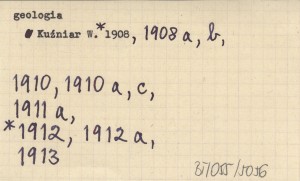 geologia
Kuźniar W.*1908, 1908 a, b,
1910, 1910 a, c,
1911 a,
*1912, 1912 a,
1913